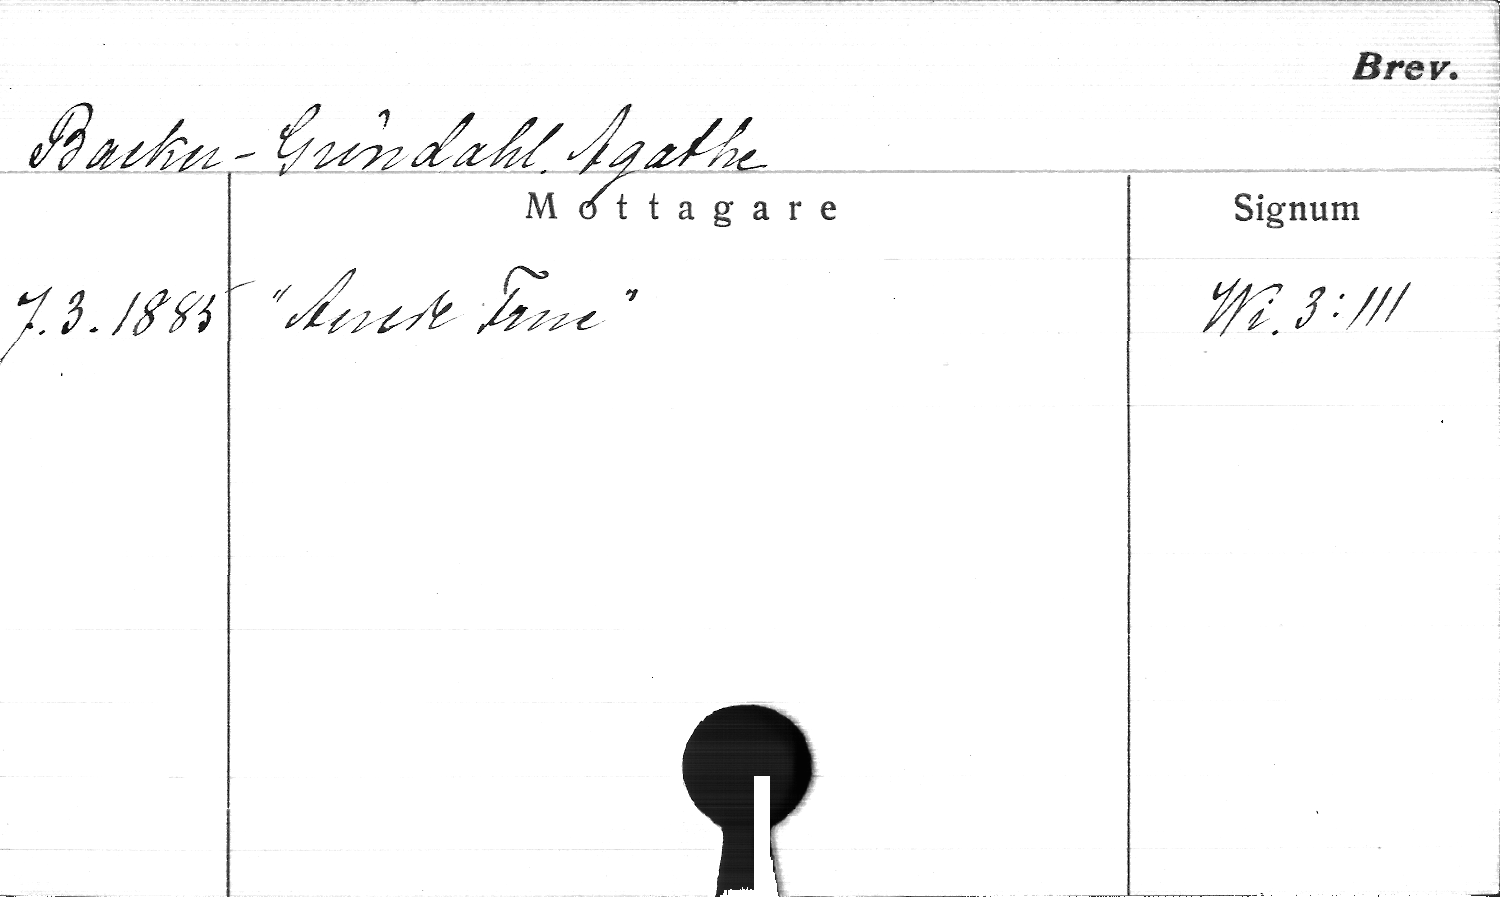 Brev.
Backer-Gröndahl, Agathe
Mottagare Signum
7.3.1885 "Ærede Frue" Wi. 3:111